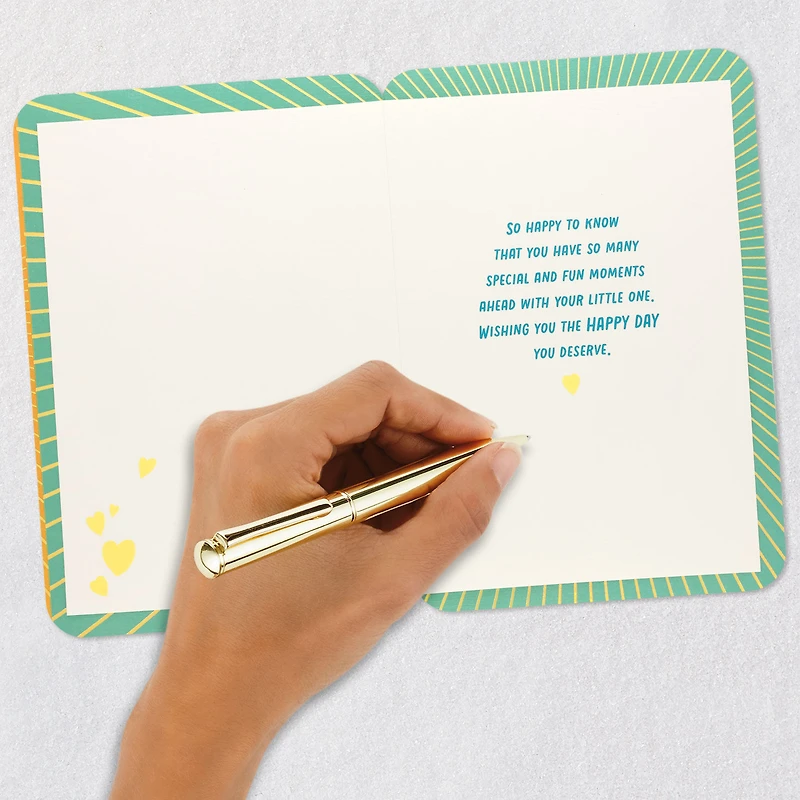 SO HAPPY TO KNOW
THAT YOU HAVE SO MANY
SPECIAL AND FUN MOMENTS
AHEAD WITH YOUR LITTLE ONE.
WISHING YOU THE HAPPY DAY
YOU DESERVE.